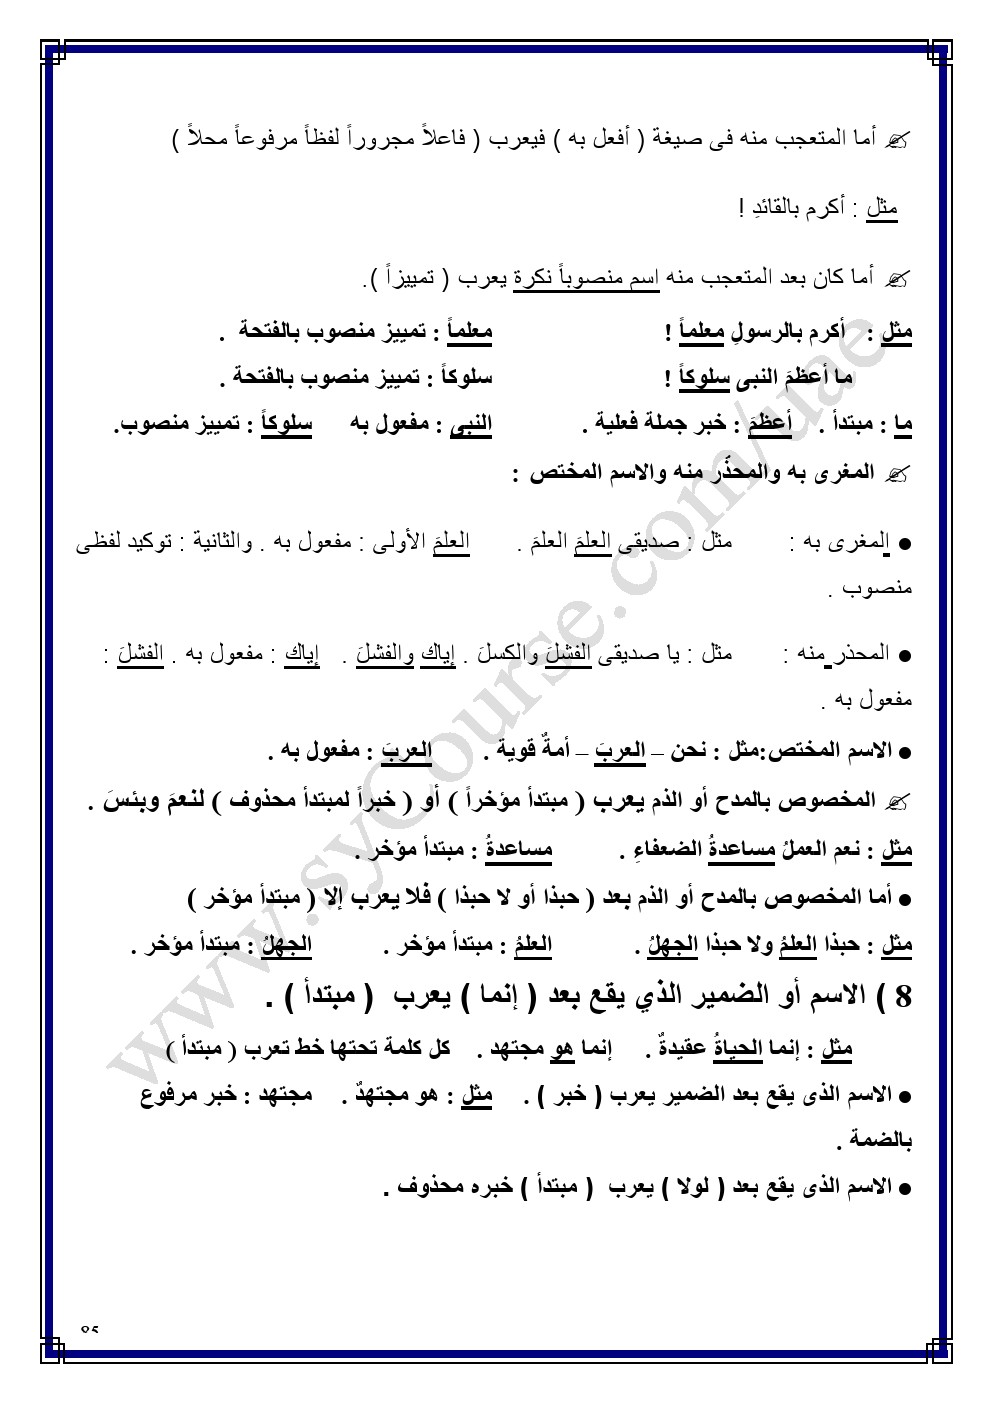 أما المتعجب منه فى صيغة ( أفعل به ) فيعرب ( فاعلاً مجروراً لفظاً مرفوعاً محلاً )
مثل : أكرم بالقائدِ !
أما كان بعد المتعجب منه اسم منصوباً نكرة يعرب ( تمييزاً ).
مثل : أكرم بالرسولِ معلماً ! معلماً : تمييز منصوب بالفتحة .
ما أعظمَ النبى سلوكاً ! سلوكاً : تمييز منصوب بالفتحة .
ما : مبتدأ . أعظمَ : خبر جملة فعلية . النبى : مفعول به سلوكاً : تمييز منصوب.
المغرى به والمحذّر منه والاسم المختص :
● المغرى به : مثل : صديقى العلمَ العلمَ . العلمَ الأولى : مفعول به . والثانية : توكيد لفظى
منصوب .
● المحذر منه : مثل : يا صديقى الفشلَ والكسلَ . إياك والفشلَ . إياك : مفعول به . الفشلَ :
مفعول به .
● الاسم المختص:مثل : نحن – العربَ – أمةٌ قوية . العربَ : مفعول به .
المخصوص بالمدح أو الذم يعرب ( مبتدأ مؤخراً ) أو ( خبراً لمبتدأ محذوف ) لنعمَ وبئسَ .
مثل : نعم العملُ مساعدةُ الضعفاءِ . مساعدةُ : مبتدأ مؤخر .
● أما المخصوص بالمدح أو الذم بعد ( حبذا أو لا حبذا ) فلا يعرب إلا ( مبتدأ مؤخر )
مثل : حبذا العلمُ ولا حبذا الجهلُ . العلمُ : مبتدأ مؤخر . الجهلُ : مبتدأ مؤخر .
8 ) الاسم أو الضمير الذي يقع بعد ( إنما ) يعرب ( مبتدأ ) .
مثل : إنما الحياةُ عقيدةٌ . إنما هو مجتهد . كل كلمة تحتها خط تعرب ( مبتدأ )
● الاسم الذى يقع بعد الضمير يعرب ( خبر ) . مثل : هو مجتهدٌ . مجتهد : خبر مرفوع
بالضمة .
● الاسم الذى يقع بعد ( لولا ) يعرب ( مبتدأ ) خبره محذوف .
www.syCourse.com/uae